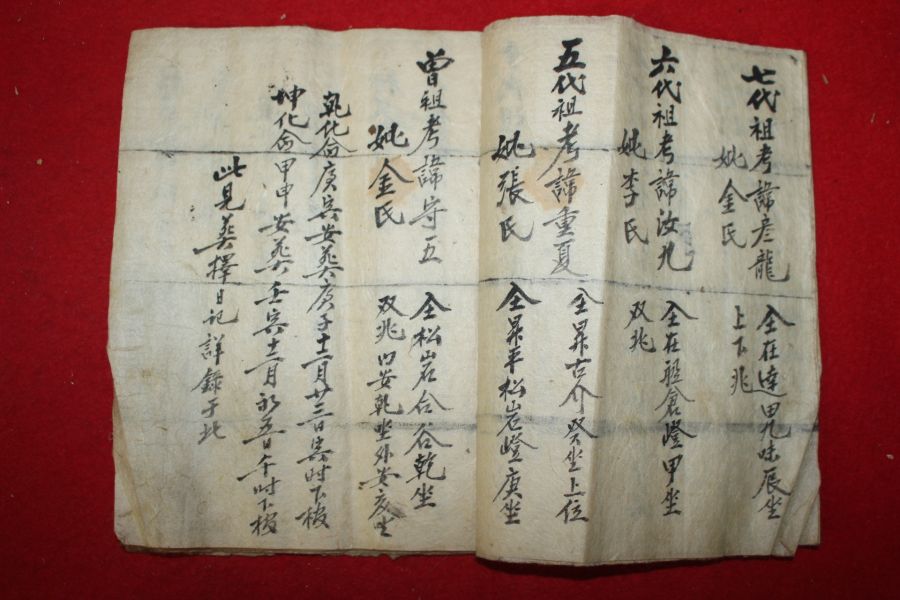 七代祖考諱彦龍 仝在達甲九味辰坐
妣金氏 上下兆
六代祖考諱汝九 仝在 倉嶝甲坐
妣李氏 双兆
五代祖考諱重夏 仝昇古介癸坐上位
妣張氏 仝昇平松岩嶝庚坐
曽祖考諱守五 仝松岩合谷乾坐
妣金氏 双兆內安乾坐外安亥坐
乾化命庚寅安葬庚子十二月廿三日寅时下棺
坤化命甲申安葬壬寅十二月初五日午时下棺
此見葬擇日記詳錄于此